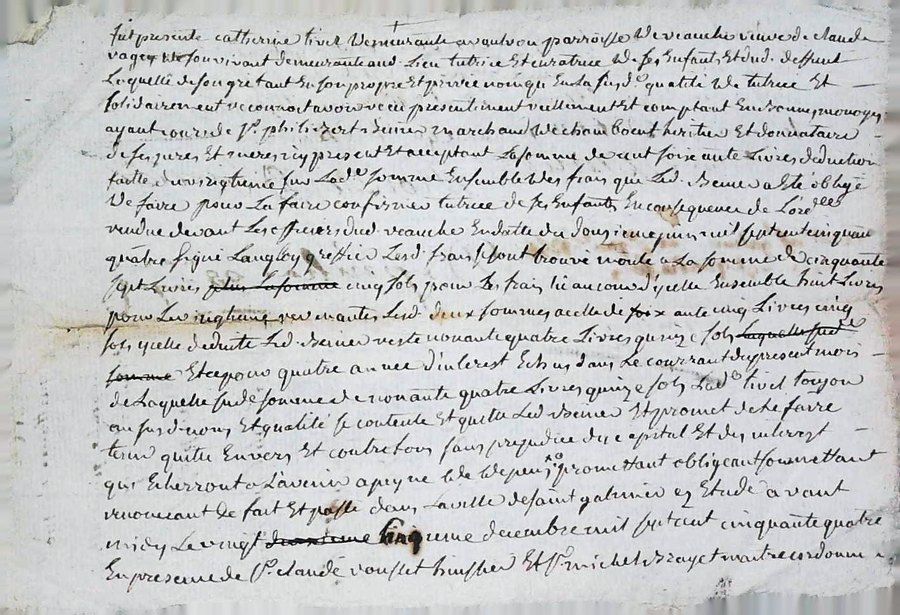 fut presente catherine tivet Demeurante avauvon parroisse De veauche veuve de claude
vager De son vivant demeurant aud. Lieu tutrice Et curatrice De ses Enfants Et dud. deffunt
Laquelle de son gré tant En son propre Et privé nom qu'En La susd.e qualité De tutrice Et
solidairement reconnoit avoir reçu presentement reellement Et comptant En Bonne monoye
ayant cours de Sr. philibert Benier marchand De chamboent heritier Et donnataire
de ses peres Et meres icy present Et acceptant La somme de cent soixante Livres deduction
faitte du vingtieme sur Lad.e somme Ensemble Des frais que Led. Benier a Eté obligé
De faire pour La faire confirmer tutrice de ses Enfants En consequence de L'ord.
rendue devant Les officiers dud. veauche En datte du douzieme juin mil sept cent cinquante
quatre signé Langloy greffier Lesd. frais s'etant trouvé monté a La somme de cinquante
sept Livres plus La somme cinq sols pour Les frais lieu au cour d'ycelle Ensemble huit Livres
pour Le vingtieme revenantes Lesd. deux sommes a celle de soixante cinq Livres cinq
sols ycelle deduite Led. Benier reste nonante quatre Livres quinze sols Laquelle susd.e
somme Et ce pour quatre année d'interest Echus dans Le courrant du present mois
de Laquelle susd. somme de nonante quatre Livres quinze sols Lad.e tivet toujon
au susd. nom Et qualité se contente Et quitte Led. Benier Et promet de Le faire
tenir quitte Envers Et contre tous sans prejudice du capital Et des interest
qui Echerront a L'avenir a peyne de tt depens promettant obligeant soumettant
renoncant De fait Et passé dans La ville de saint galmier Ez Etude avant
midy Le vingt deuxieme cinquieme decembre mil sept cent cinquante quatre
En presence de Sr. claude rousset huissier Et Sr. michel Brazet maitre cordonnier